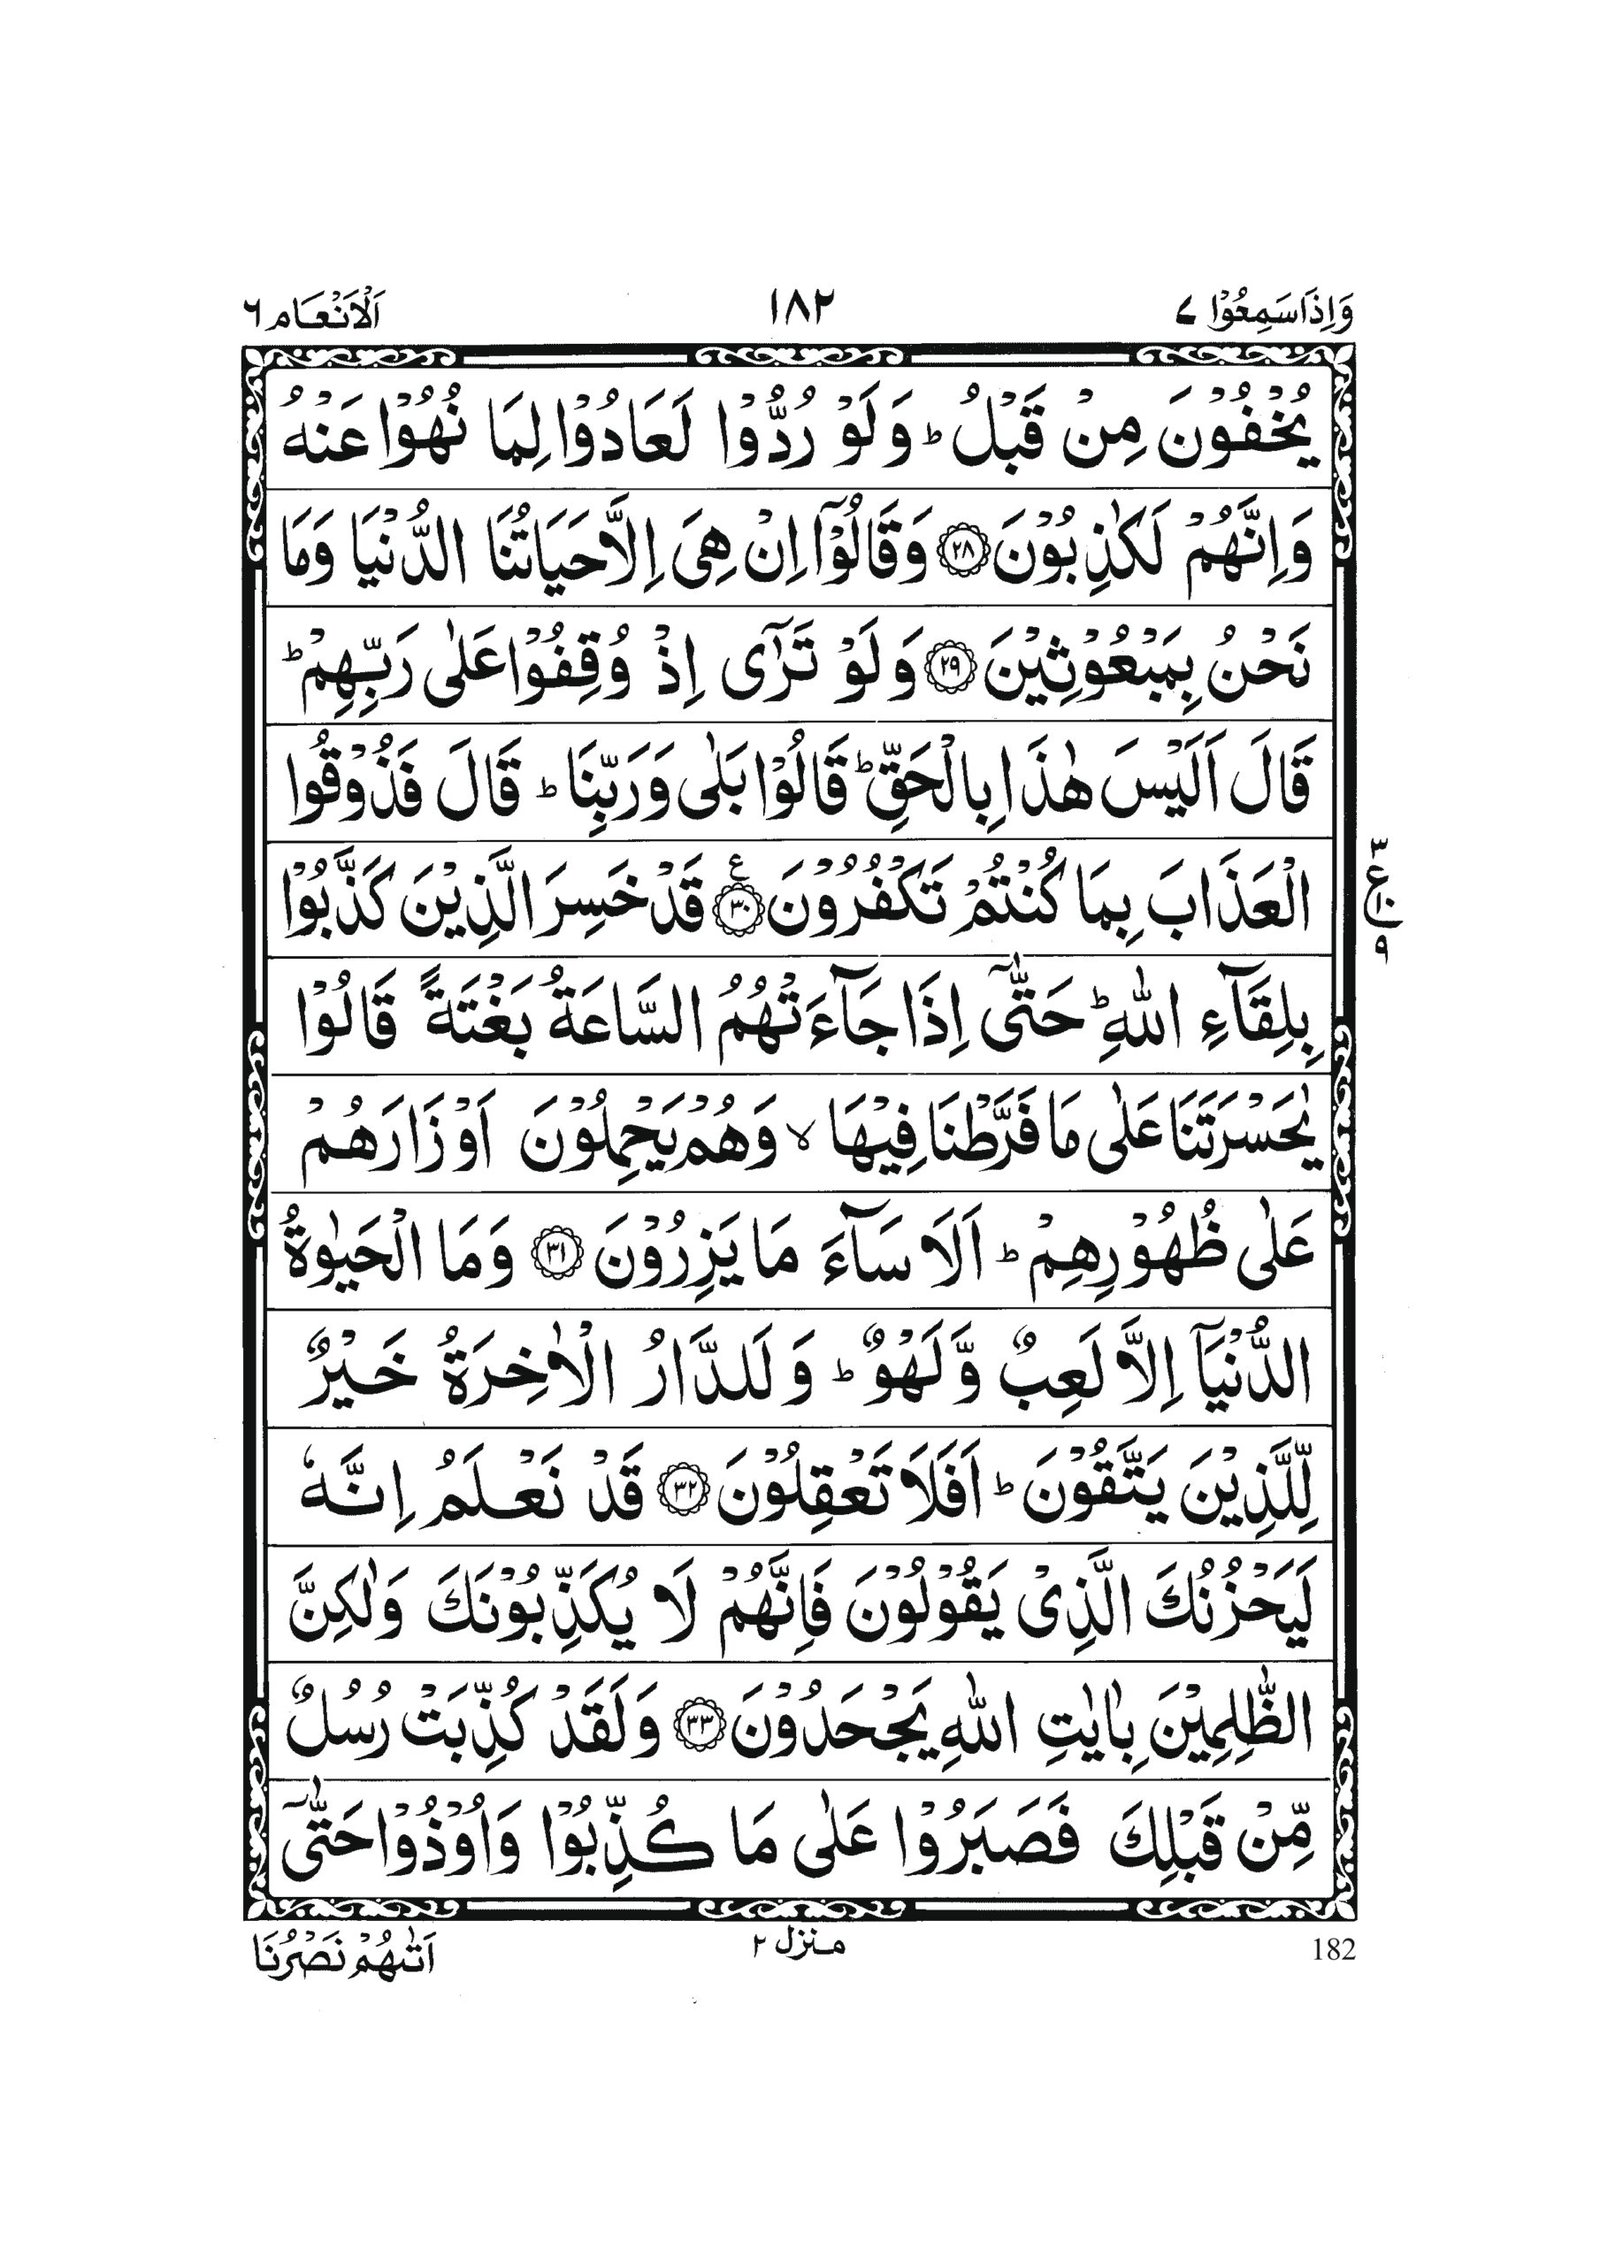 وَاِذَاسَمِعُوْا ٧
١٨٢
اَلْاَنْعَام ٦
يُخْفُوْنَ مِنْ قَبْلُ ؕ وَلَوْ رُدُّوْا لَعَادُوْا لِمَا نُهُوْا عَنْهُ
وَاِنَّهُمْ لَكٰذِبُوْنَ ﴿٢٨﴾ وَقَالُوْۤا اِنْ هِىَ اِلَّا حَيَاتُنَا الدُّنْيَا وَمَا
نَحْنُ بِمَبْعُوْثِيْنَ ﴿٢٩﴾ وَلَوْ تَرٰٓى اِذْ وُقِفُوْا عَلٰى رَبِّهِمْ ؕ
قَالَ اَلَيْسَ هٰذَا بِالْحَقِّ ؕ قَالُوْا بَلٰى وَرَبِّنَا ؕ قَالَ فَذُوْقُوا
الْعَذَابَ بِمَا كُنْتُمْ تَكْفُرُوْنَ ﴿٣٠﴾ ع قَدْ خَسِرَ الَّذِيْنَ كَذَّبُوْا
٣
ع
١٠
٩
بِلِقَآءِ اللّٰهِ ؕ حَتّٰٓى اِذَا جَآءَتْهُمُ السَّاعَةُ بَغْتَةً قَالُوْا
يٰحَسْرَتَنَا عَلٰى مَا فَرَّطْنَا فِيْهَا ۙ وَهُمْ يَحْمِلُوْنَ اَوْزَارَهُمْ
عَلٰى ظُهُوْرِهِمْ ؕ اَلَا سَآءَ مَا يَزِرُوْنَ ﴿٣١﴾ وَمَا الْحَيٰوةُ
الدُّنْيَاۤ اِلَّا لَعِبٌ وَّلَهْوٌ ؕ وَلَلدَّارُ الْاٰخِرَةُ خَيْرٌ
لِّلَّذِيْنَ يَتَّقُوْنَ ؕ اَفَلَا تَعْقِلُوْنَ ﴿٣٢﴾ قَدْ نَعْلَمُ اِنَّهٗ
لَيَحْزُنُكَ الَّذِىْ يَقُوْلُوْنَ فَاِنَّهُمْ لَا يُكَذِّبُوْنَكَ وَلٰكِنَّ
الظّٰلِمِيْنَ بِاٰيٰتِ اللّٰهِ يَجْحَدُوْنَ ﴿٣٣﴾ وَلَقَدْ كُذِّبَتْ رُسُلٌ
مِّنْ قَبْلِكَ فَصَبَرُوْا عَلٰى مَا كُذِّبُوْا وَاُوْذُوْا حَتّٰٓى
182
منزل ٢
اَتٰىهُمْ نَصْرُنَا